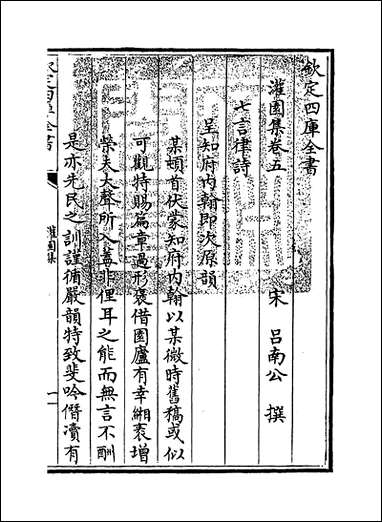 欽定四庫全書
灌園集卷五
宋 呂南公 撰
七言律詩
呈知府內翰即次原韻
某頓首伏蒙知府內翰以某微時舊稿或似
可觀特賜篇章過形褒借園廬有幸緗袠增
榮夫大聲所入蓋非俚耳之能而無言不酬
是亦先民之訓謹循嚴韻特致斐吟僭瀆有
欽定四庫全書
灌園集
一